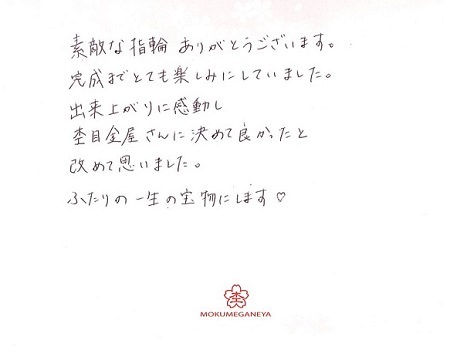 素敵な指輪 ありがとうございます。
完成までとても楽しみにしていました。
出来上がりに感動し
杢目金屋さんに決めて良かったと
改めて思いました。
ふたりの一生の宝物にします♡
杢
MOKUMEGANEYA